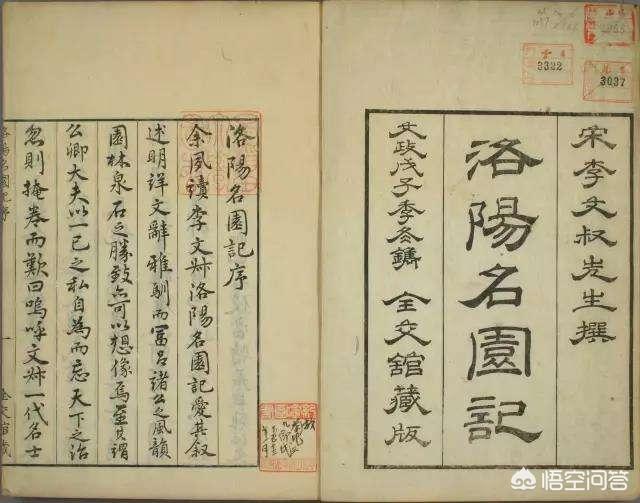 3322
3037
宋李文叔先生撰
洛陽名園記
文政戊子季冬鐫 全交舘藏版
洛陽名園記序
余夙讀李文叔洛陽名園記愛其叙
述明詳文辭雅馴而冨呂諸公之風韻
園林泉石之勝致亦可以想像焉至其謂
公卿大夫以一己之私自為而忘天下之治
忽則掩卷而歎曰嗚呼文叔一代名士
悟空问答